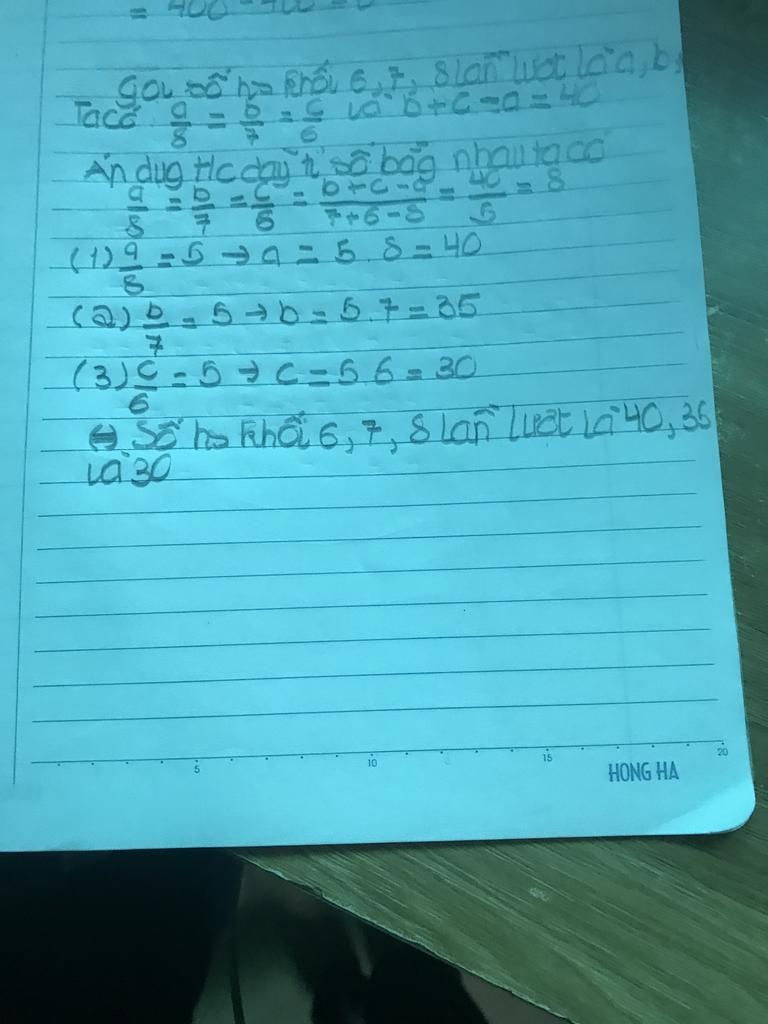 = 400 - 400 = 0
Gọi số hs khối 6, 7, 8 lần lượt là a, b,
Ta có a/8 = b/7 = c/6 và b + c - a = 40
Áp dụg t/c dãy tỉ số bằg nhau ta có
a/8 = b/7 = c/6 = b + c - a / 7 + 6 - 8 = 40/5 = 8
(1) a/8 = 5 → a = 5 . 8 = 40
(2) b/7 = 5 → b = 5 . 7 = 35
(3) c/6 = 5 → c = 5 . 6 = 30
Số hs khối 6, 7, 8 lần lượt là 40, 35
và 30
5 10 15 20
HONG HA